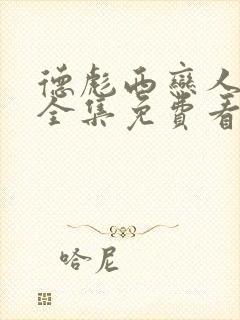 德彪西恋人
全集免费看
哈尼